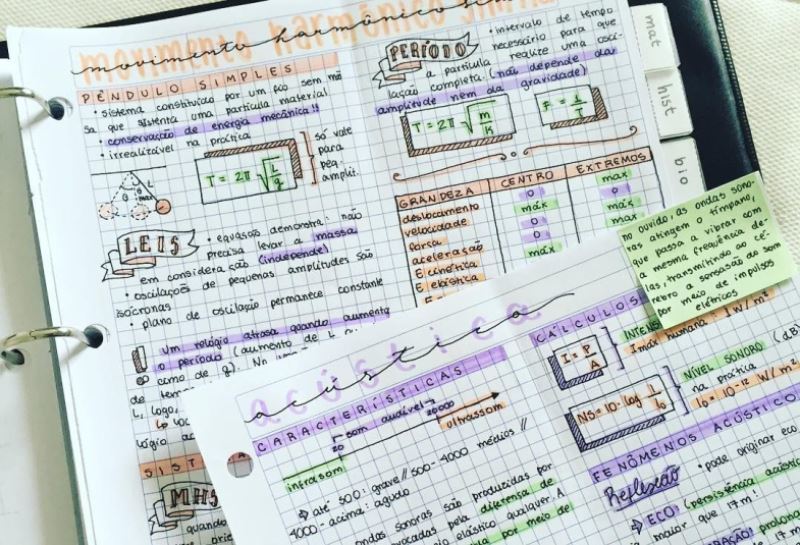 movimento harmônico sim
PÊNDULO SIMPLES
• sistema constituído por um fio sem mas
sa que sustenta uma partícula material
• conservação de energia mecânica!!
• irrealizável na prática
T = 2π √L/g
só vale
para
peq.
amplit.
L
θ θ
LEIS
• equação demonstra: não
precisa levar a massa
em consideração (independe)
• oscilações de pequenas amplitudes são
isócronas
• plano de oscilação permanece constante
um relógio atrasa quando aumenta
o período (aumento de L
L, logo,
SIST
MHS
quando
PERÍODO
• intervalo de tempo
necessário para que
a partícula realize uma osci-
lação completa. (não depende da
amplitude nem da gravidade)
T = 2π √m/k
F = 1/T
GRANDEZA CENTRO EXTREMOS
deslocamento 0 max
velocidade máx 0
força 0 max
aceleração 0 max
E cinética máx
E elástica
mat
hist
bio
no ouvido, as ondas sono-
ras atingem o tímpano,
que passa a vibrar com
a mesma frequência de-
las, transmitindo ao cé-
rebro a sensação do som
por meio de impulsos
elétricos
acústica
CARACTERÍSTICAS
som audível
20 20000
infrassom ultrassom
⇒ até 500: grave // 500 - 4000 médios //
4000 - acima: agudo
ondas sonoras são produzidas por
provocadas pela diferença de
elástico qualquer. A
por meio de
CÁLCULOS
I = P/A
INTENS
Imáx humana 1 W/m²
NS = 10 · log I/I₀
NÍVEL SONORO (dB
na prática
I₀ = 10⁻¹² W/m²
FENÔMENOS ACÚSTICO
Reflexão
• pode originar eco,
⇒ ECO: (persistência acústic
maior que 17m:
prolon